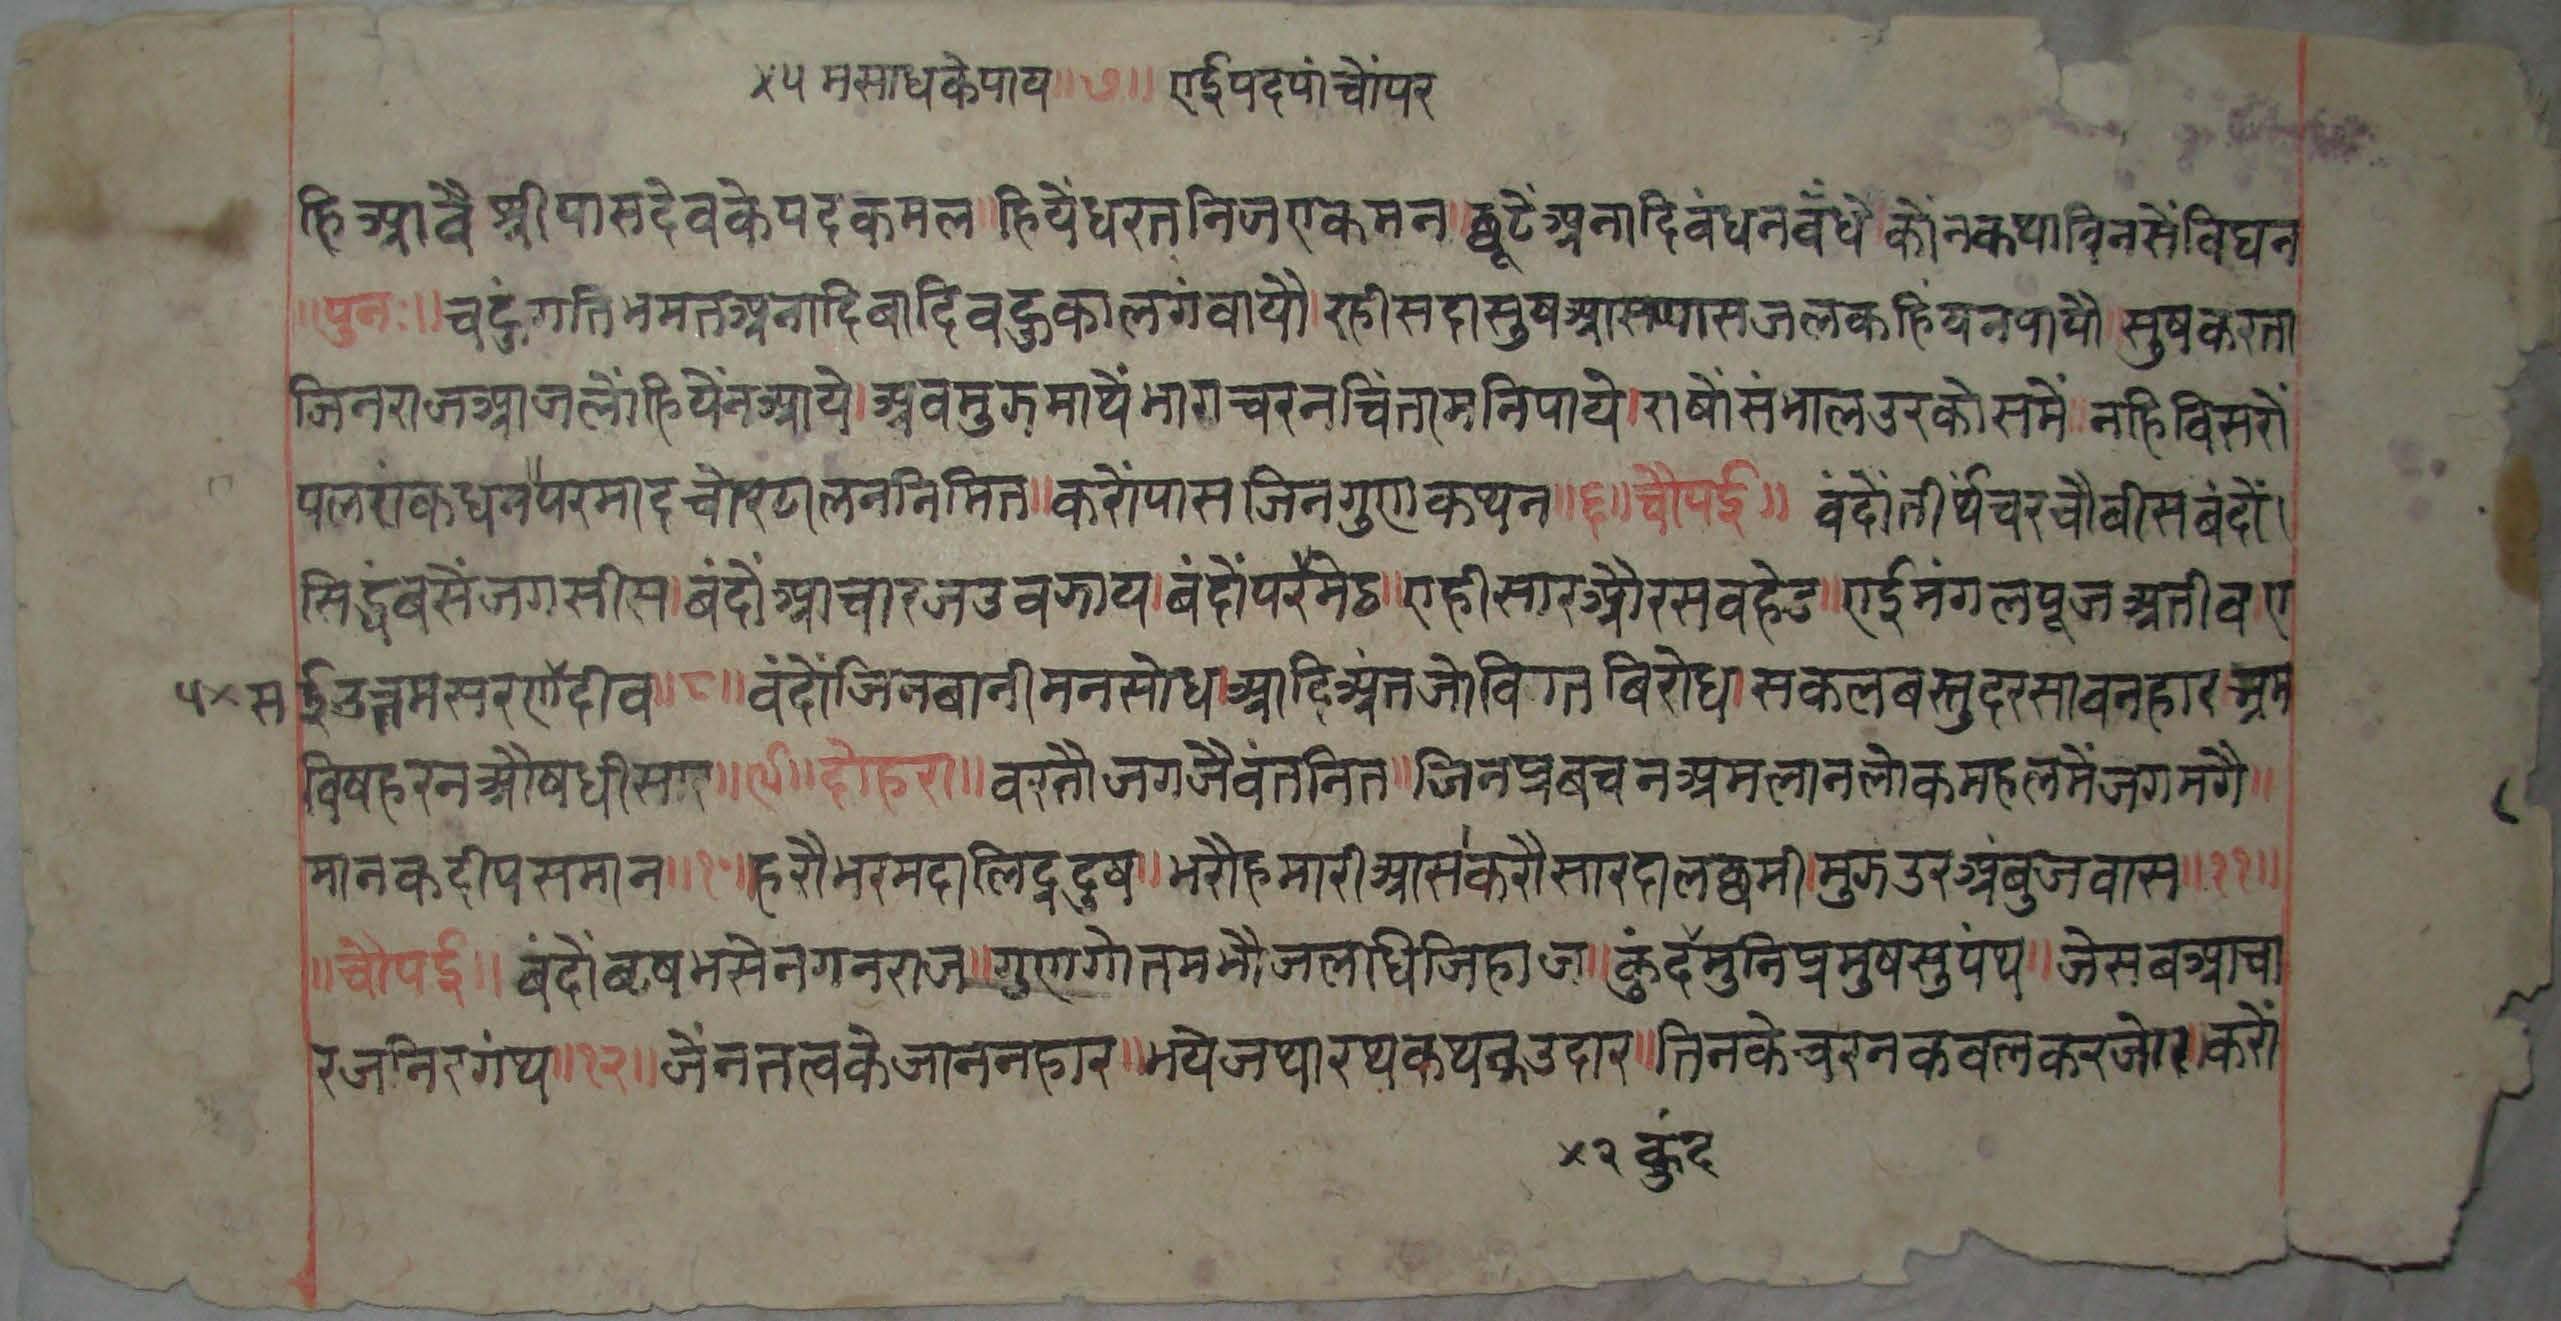 ×५ मसाधकेपाय॥७॥ एईपदपांचोंपर
हिआवै श्रीपासदेवकेपदकमल॥हियेंधरतनिजएकमन॥छूटेंअनादिबंधनबँधै कोंनकथाविनसेंविघन
॥पुनः॥ चहुंगतिभमतअनादिबादिवहुकालगंवायौ।रहीसदासुषआसप्यासजलकहिंयनपायौ।सुषकरता
जिनराजआजलोंहियेंनआये।अवमुझमाथेंभागचरनचिंतामनिपाये।राषोंसंभालउरकोसमें॥नहिविसरों
पलरांकधन॥परमादचोरटालननिमित॥करोंपासजिनगुणकथन॥६॥चौपई॥ वंदोंतीर्थचरचौबीसबंदों।
सिद्धंबसेंजगसीस॥बंदोंआचारजउवझाय॥बंदोंपरमेठ॥एहीसारऔरसवहेठ॥एईमंगलपूजअतीव॥ए
५×स ईउत्तमसरणदीव॥८॥ वंदोंजिनबानीमनसोध॥आदिअंतजोविगतबिरोध॥सकलबस्तुदरसावनहार॥भ्रम
विषहरनऔषधीसार॥९॥दोहरा॥ वरतौजगजैवंतनित॥जिनप्रबचनअमलानलोकमहलमेंजगमगै॥
मानकदीपसमान॥१०॥हरौभरमदालिद्रदुष॥भरौहमारीआस॥करौसारदालछमी॥मुझउरअंबुजवास॥११॥
॥चौपई॥ बंदोंवृषभसेनगनराज॥गुणगोतमभौजलाधिजिहाज॥कुंदमुनिप्रमुषसुपंथ॥जेसबआचा
रजनिरगंथ॥१२॥ जेंनतत्वकेजाननहार॥भयेजथारथकथकउदार॥तिनकेचरनकवलकरजोर॥करों
×२ कुंद